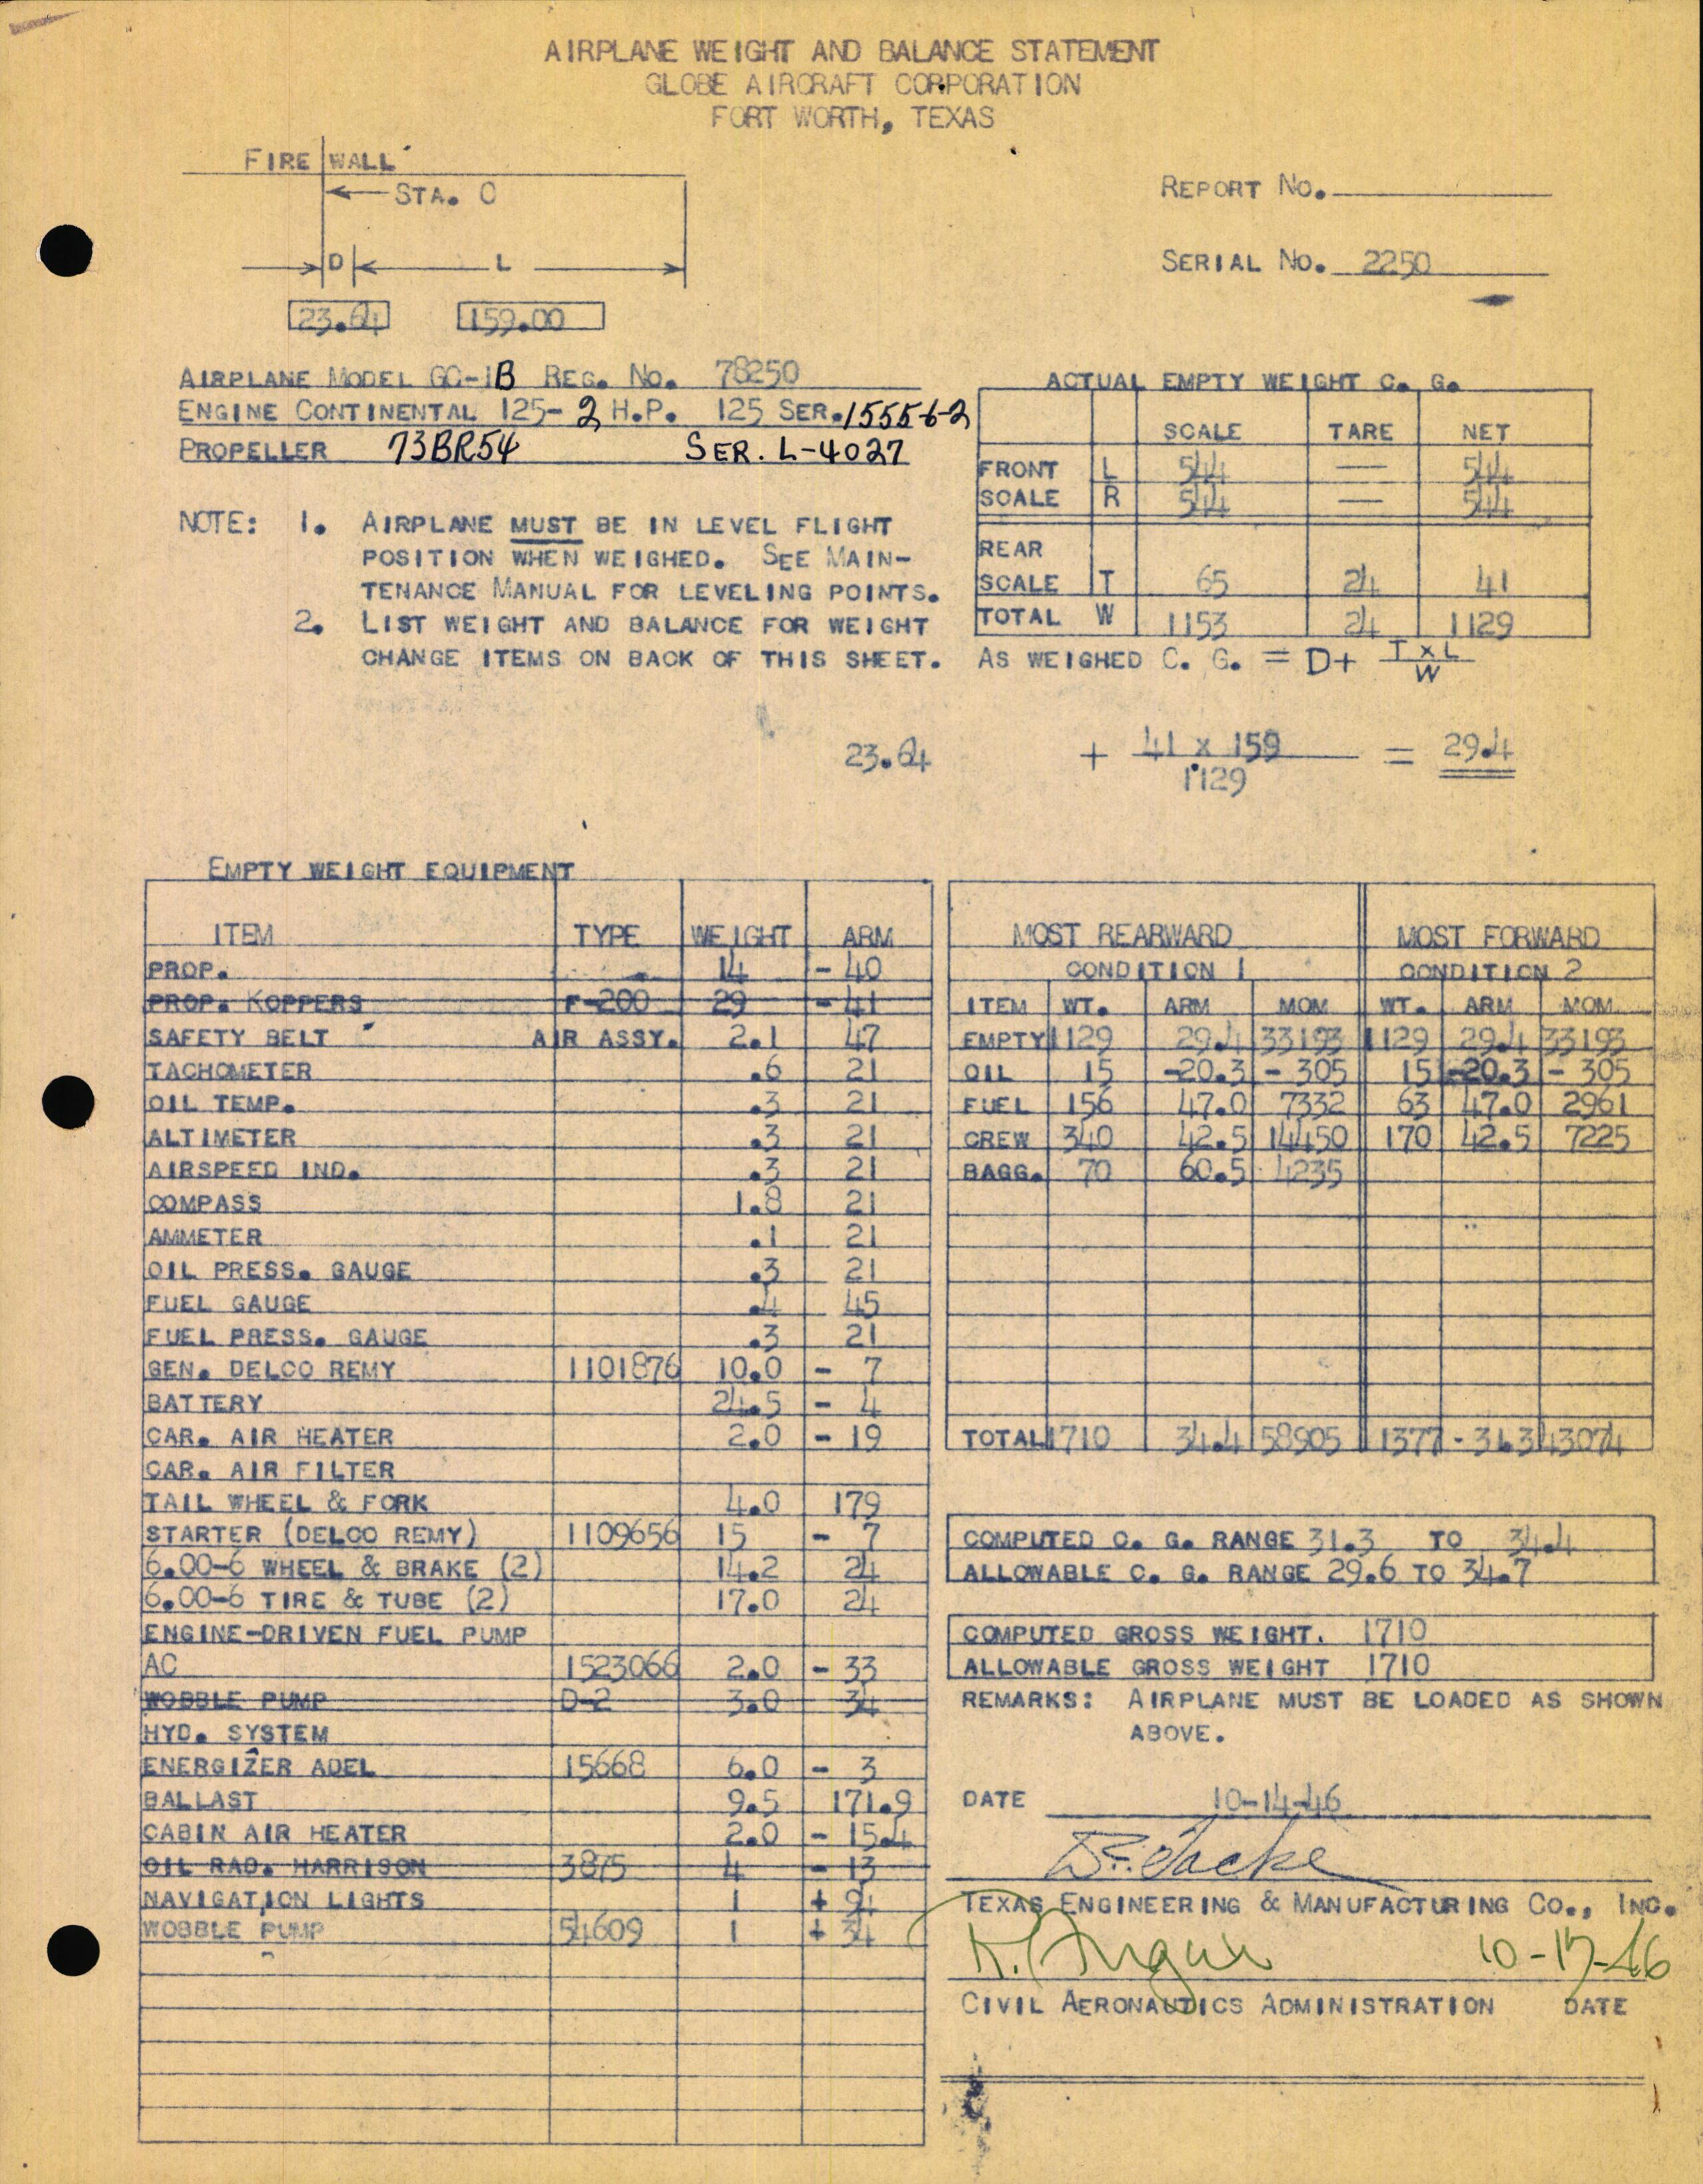 AIRPLANE WEIGHT AND BALANCE STATEMENT
GLOBE AIRCRAFT CORPORATION
FORT WORTH, TEXAS
FIRE WALL
STA. 0
D L
23.64 159.00
REPORT NO.
SERIAL NO. 2250
AIRPLANE MODEL GC-1B REG. NO. 78250
ENGINE CONTINENTAL 125-2 H.P. 125 SER. 15556-2
PROPELLER 73BR54 SER. L-4027
NOTE: 1. AIRPLANE MUST BE IN LEVEL FLIGHT
POSITION WHEN WEIGHED. SEE MAIN-
TENANCE MANUAL FOR LEVELING POINTS.
2. LIST WEIGHT AND BALANCE FOR WEIGHT
CHANGE ITEMS ON BACK OF THIS SHEET.
ACTUAL EMPTY WEIGHT C. G.
SCALE TARE NET
FRONT L 544 — 544
SCALE R 544 — 544
REAR
SCALE T 65 24 41
TOTAL W 1153 24 1129
AS WEIGHED C. G. = D+ T x L
W
23.64 + 41 x 159 = 29.4
1129
EMPTY WEIGHT EQUIPMENT
ITEM TYPE WEIGHT ARM
PROP. 14 - 40
PROP. KOPPERS F-200 29 - 41
SAFETY BELT AIR ASSY. 2.1 47
TACHOMETER .6 21
OIL TEMP. .3 21
ALTIMETER .3 21
AIRSPEED IND. .3 21
COMPASS 1.8 21
AMMETER .1 21
OIL PRESS. GAUGE .3 21
FUEL GAUGE .4 45
FUEL PRESS. GAUGE .3 21
GEN. DELCO REMY 1101876 10.0 - 7
BATTERY 24.5 - 4
CAR. AIR HEATER 2.0 - 19
CAR. AIR FILTER
TAIL WHEEL & FORK 4.0 179
STARTER (DELCO REMY) 1109656 15 - 7
6.00-6 WHEEL & BRAKE (2) 14.2 24
6.00-6 TIRE & TUBE (2) 17.0 24
ENGINE-DRIVEN FUEL PUMP
AC 1523066 2.0 - 33
WOBBLE PUMP D-2 3.0 34
HYD. SYSTEM
ENERGIZER ADEL 15668 6.0 - 3
BALLAST 9.5 171.9
CABIN AIR HEATER 2.0 - 15.4
OIL RAD. HARRISON 3875 4 - 13
NAVIGATION LIGHTS 1 + 94
WOBBLE PUMP 54609 1 + 34
MOST REARWARD MOST FORWARD
CONDITION 1 CONDITION 2
ITEM WT. ARM MOM WT. ARM MOM
EMPTY 1129 29.4 33193 1129 29.4 33193
OIL 15 -20.3 - 305 15 -20.3 - 305
FUEL 156 47.0 7332 63 47.0 2961
CREW 340 42.5 14450 170 42.5 7225
BAGG. 70 60.5 4235
TOTAL 1710 34.4 58905 1377 - 31.3 43074
COMPUTED C. G. RANGE 31.3 TO 34.4
ALLOWABLE C. G. RANGE 29.6 TO 34.7
COMPUTED GROSS WEIGHT. 1710
ALLOWABLE GROSS WEIGHT 1710
REMARKS: AIRPLANE MUST BE LOADED AS SHOWN
ABOVE.
DATE 10-14-46
TEXAS ENGINEERING & MANUFACTURING CO., INC.
10-17-46
CIVIL AERONAUTICS ADMINISTRATION DATE